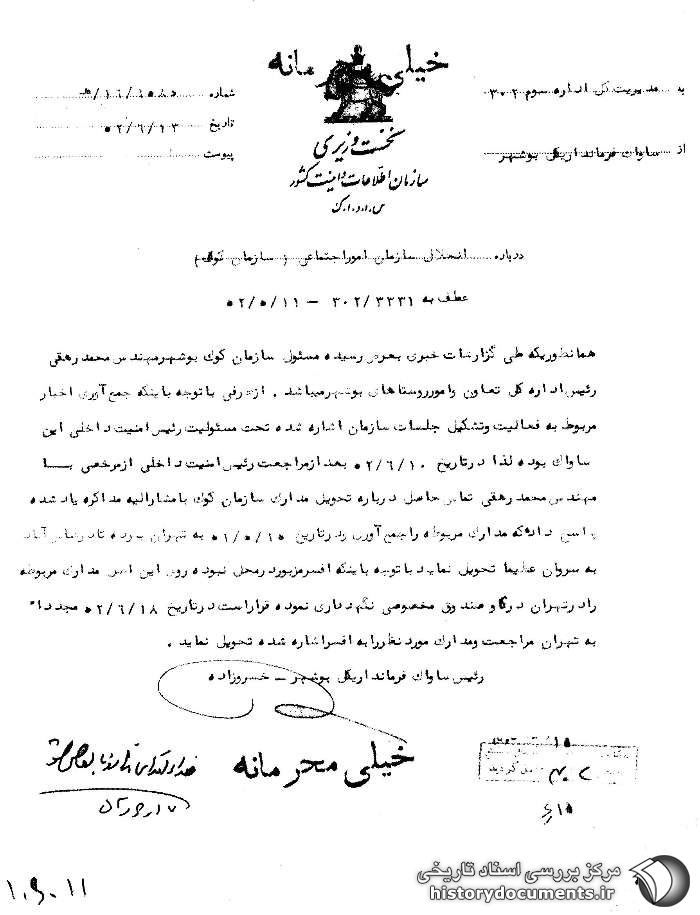 خیلی محرمانه
به مدیریت کل اداره سوم ۳۰۲
از ساواک فرمانداریکل بوشهر
شماره
تاریخ ۵۲/۶/۱۳
پیوست
نخست وزیری
سازمان اطلاعات و امنیت کشور
س.ا.و.ا.ک
درباره انحلال سازمان اموراجتماعی (سازمان کوک)
عطف به ۳۰۲/۳۳۳۱ – ۵۲/۵/۱۱
همانطوریکه طی گزارشات خبری بعرض رسیده مسئول سازمان کوک بوشهر مهندس محمد رهقی
رئیس اداره کل تعاون وامورروستاهای بوشهرمیباشد . ازطرفی باتوجه باینکه جمع آوری اخبار
مربوط به فعالیت وتشکیل جلسات سازمان اشاره شده تحت مسئولیت رئیس امنیت داخلی این
ساواک بوده لذا درتاریخ ۵۲/۶/۱۰ بعد ازمراجعت رئیس امنیت داخلی ازمرخصی بــا
مهندس محمد رهقی تماس حاصل درباره تحویل مدارک سازمان کوک بامشارالیه مذاکره یاد شده
پاسخ داد که مدارک مربوطه راجمع آوری ودرتاریخ به تهران برده تا درعباس آباد
به سروان عظیما تحویل نماید باتوجه باینکه افسرمزبوردرمحل نبوده روی این اصل مدارک مربوطه
رادرتهران درگاو صندوق مخصوصی نگهداری نموده قراراست درتاریخ ۵۲/۶/۱۸ مجدداً
به تهران مراجعت ومدارک مورد نظررابه افسراشاره شده تحویل نماید .
رئیس ساواک فرمانداریکل بوشهر – خسروزاده
خیلی محرمانه
۱۵
مرکز بررسی اسناد تاریخی
historydocuments.ir